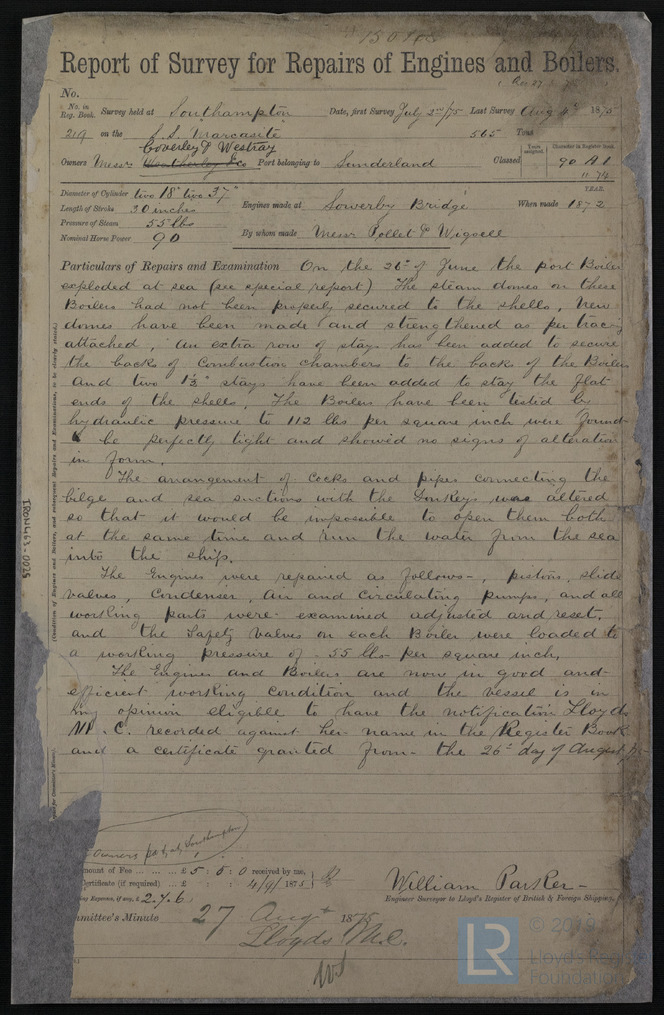 Report of Survey for Repairs of Engines and Boilers.
No.
No. in Reg. Book. Survey held at Southampton Date, first Survey July 2nd/75 Last Survey Aug 1875
219 on the S.S. "Marcasite" 565 Tons
Coverly & Westray
Owners Messrs Port belonging to Sunderland Classed Years assigned. Character in Register Book. 90 A1
11.74
Diameter of Cylinder two 18" two 37"
Length of Stroke 30 inches
Pressure of Steam 55 lbs
Nominal Horse Power 90
Engines made at Sowerby Bridge When made YEAR. 1872
By whom made Messrs Pollet & Wigzell
Particulars of Repairs and Examination On the 26th of June the port Boiler
exploded at sea (see special report) The steam domes on these
Boilers had not been properly secured to the shells, New
domes have been made and strengthened as per tracing
attached, An extra row of stays has been added to secure
the backs of Combustion chambers to the backs of the Boilers
and two stays have been added to stay the flat
ends of the shells, The Boilers have been tested by
hydraulic pressure to 112 lbs per square inch were found
to be perfectly tight and showed no signs of alteration
in form.
The arrangement of cocks and pipes connecting the
bilge and sea suctions with the Donkeys was altered
so that it would be impossible to open them both
at the same time and run the water from the sea
into the ship.
The Engines were repaired as follows-, pistons, slide
valves, Condenser, air and circulating pumps, and all
working parts were examined adjusted and reset,
and the Safety valves on each Boiler were loaded to
a working pressure of 55 lbs per square inch,
The Engines and Boilers are now in good and
efficient working condition and the vessel is in
my opinion eligible to have the notification Lloyds
M.C. recorded against her name in the Register Book
and a certificate granted from the 26th day of August
(Condition of Engines and Boilers, and subsequent Repairs and Examinations, to be clearly stated.)
IRON463-0028
Owners Southampton
Amount of Fee £ 5 : 5 : 0 received by me,
Certificate (if required) £ : : 4/9/1875
2.7.6
William Parker
Engineer Surveyor to Lloyd's Register of British & Foreign Shipping.
Committee's Minute 27 Augt 1875
Lloyds M.C.
LR
© 2019
Lloyd's Register
Foundation